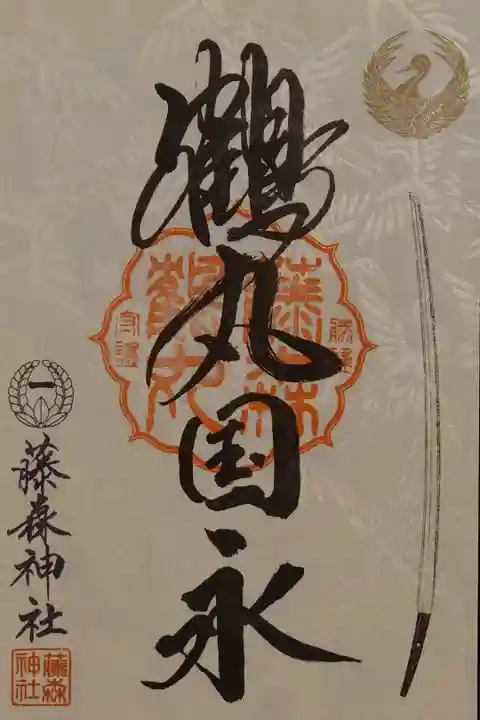 鶴丸国永
藤森神社
藤森
鶴丸
守護
一
藤森神社